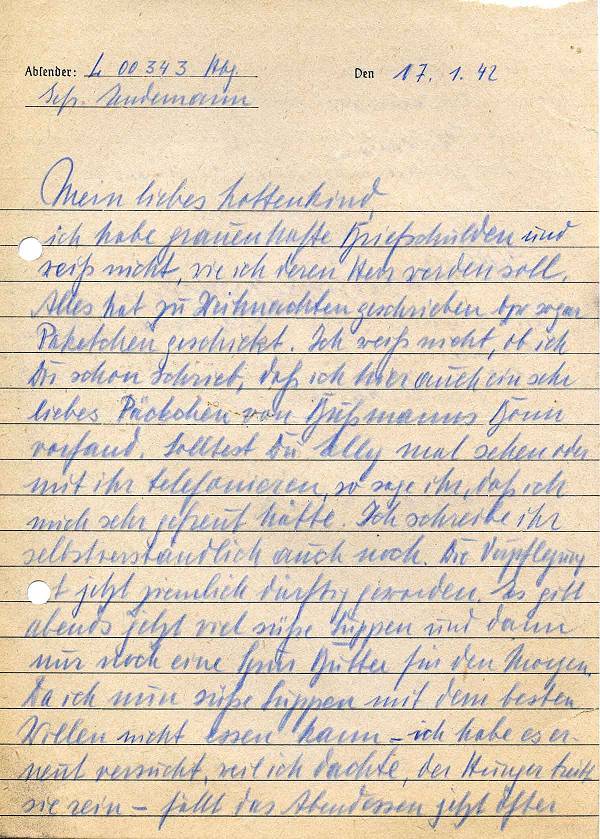 Absender: L 00343
Den 17. 1. 42
Mein liebes Lottenkind,
ich habe grauenhafte Briefschulden und
weiß nicht, wie ich deren Herr werden soll.
Alles hat zu Weihnachten geschrieben bzw sogar
Paketchen geschickt. Ich weiß nicht, ob ich
Dir schon schrieb, daß ich hier auch ein sehr
liebes Päckchen von Bonn
vorfand. Solltest Du Elly mal sehen oder
mit ihr telefonieren, so sage ihr, daß ich
mich sehr gefreut hätte. Ich schreibe ihr
selbstverständlich auch noch. Die Verpflegung
t jetzt ziemlich dürftig geworden. Es gibt
abends jetzt viel süße Suppen und dann
nur noch eine Butter für den Morgen.
Da ich nun süße Suppen mit dem besten
Willen nicht essen kann – ich habe es er-
neut versucht, weil ich dachte, der Hunger treibt
sie rein – fällt das Abendessen jetzt öfter